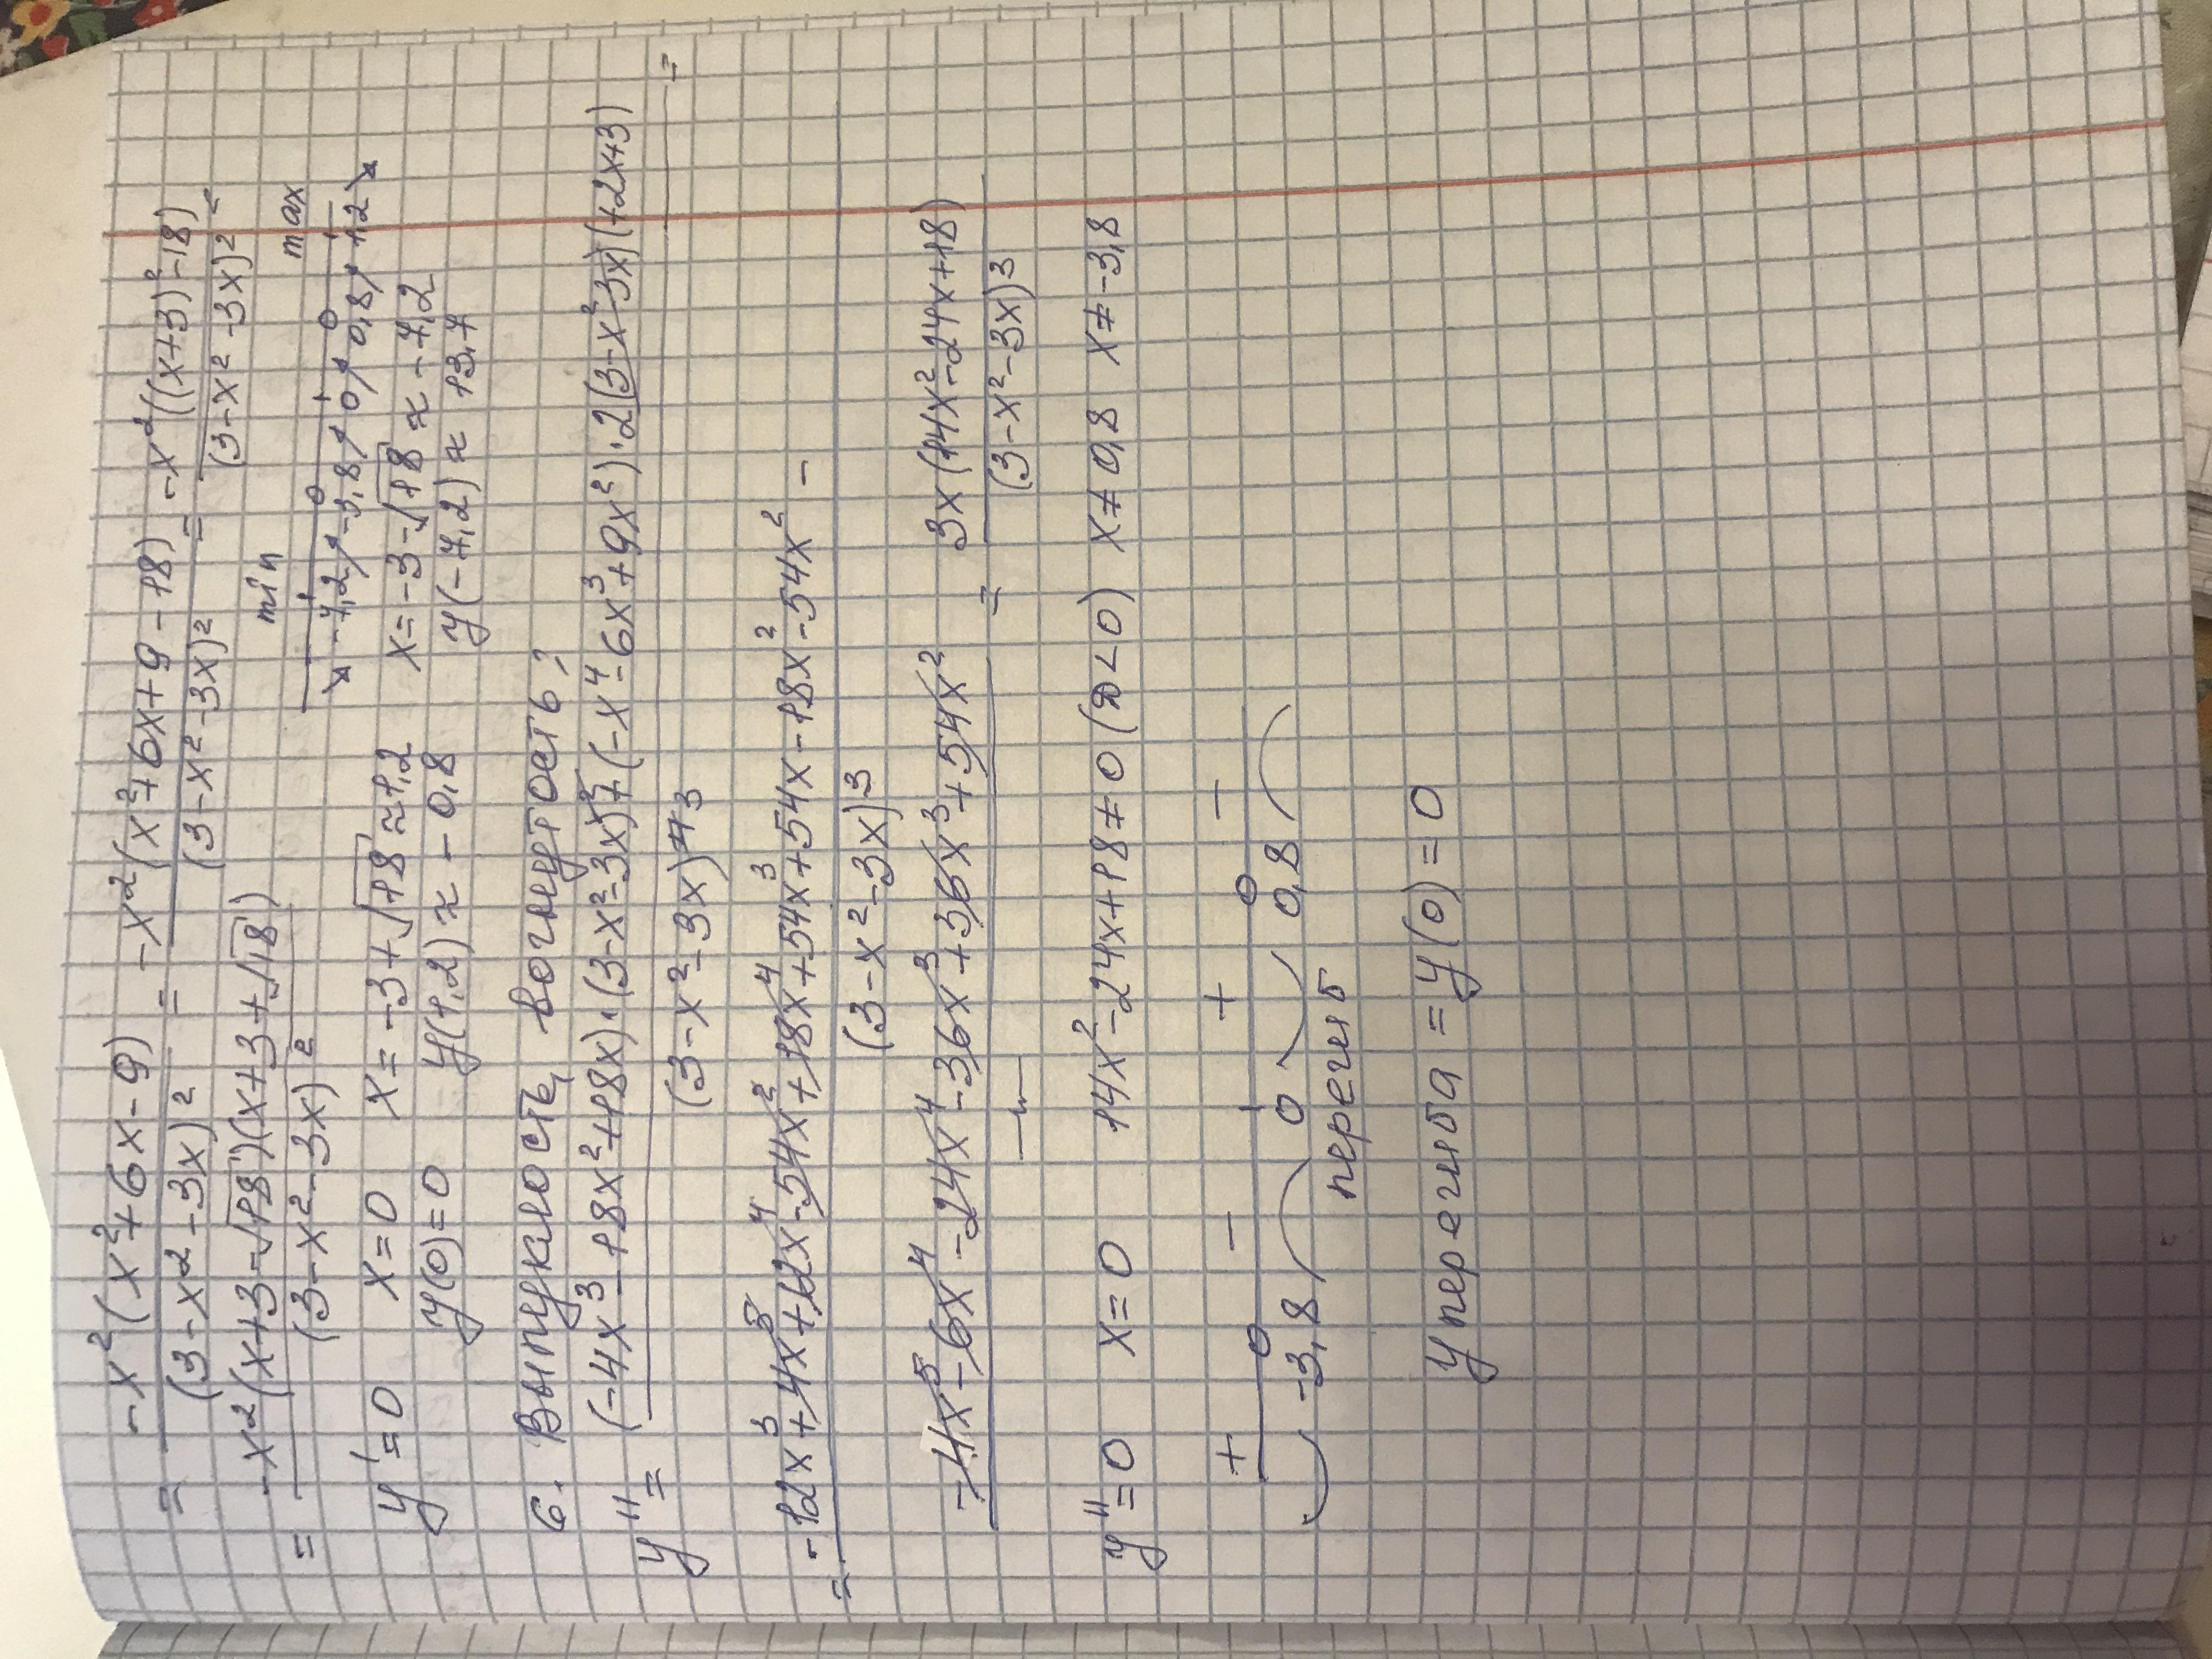 = -x²(x²+6x-9) / (3-x²-3x)² = -x²(x²+6x+9-18) / (3-x²-3x)² = -x²((x+3)²-18) / (3-x²-3x)² =
= -x²(x+3-√18)(x+3+√18) / (3-x²-3x)²
min max
-7,2 -3,8 0 0,8 1,2
y'=0 x=0 x=-3+√18≈1,2 x=-3-√18≈-7,2
y(0)=0 y(1,2)≈-0,8 y(-7,2)≈13,7
6. Выпуклость, вогнутость?
y''= (-4x³-18x²+18x)·(3-x²-3x)+(-x⁴-6x³+9x²)·2(3-x²-3x)(+2x+3) / (3-x²-3x)³ =
= -12x³+4x⁵+12x⁴-54x²+18x⁴+54x³+54x-18x²-54x² -
(3-x²-3x)³
-4x⁵-6x⁴-24x⁴-36x³+36x³+54x² = 3x(14x²-24x+18) / (3-x²-3x)³
y''=0 x=0 14x²-24x+18≠0 (D<0) x≠0,8 x≠-3,8
+ - + -
-3,8 0 0,8
перегиб
y перегиба = y(0)=0